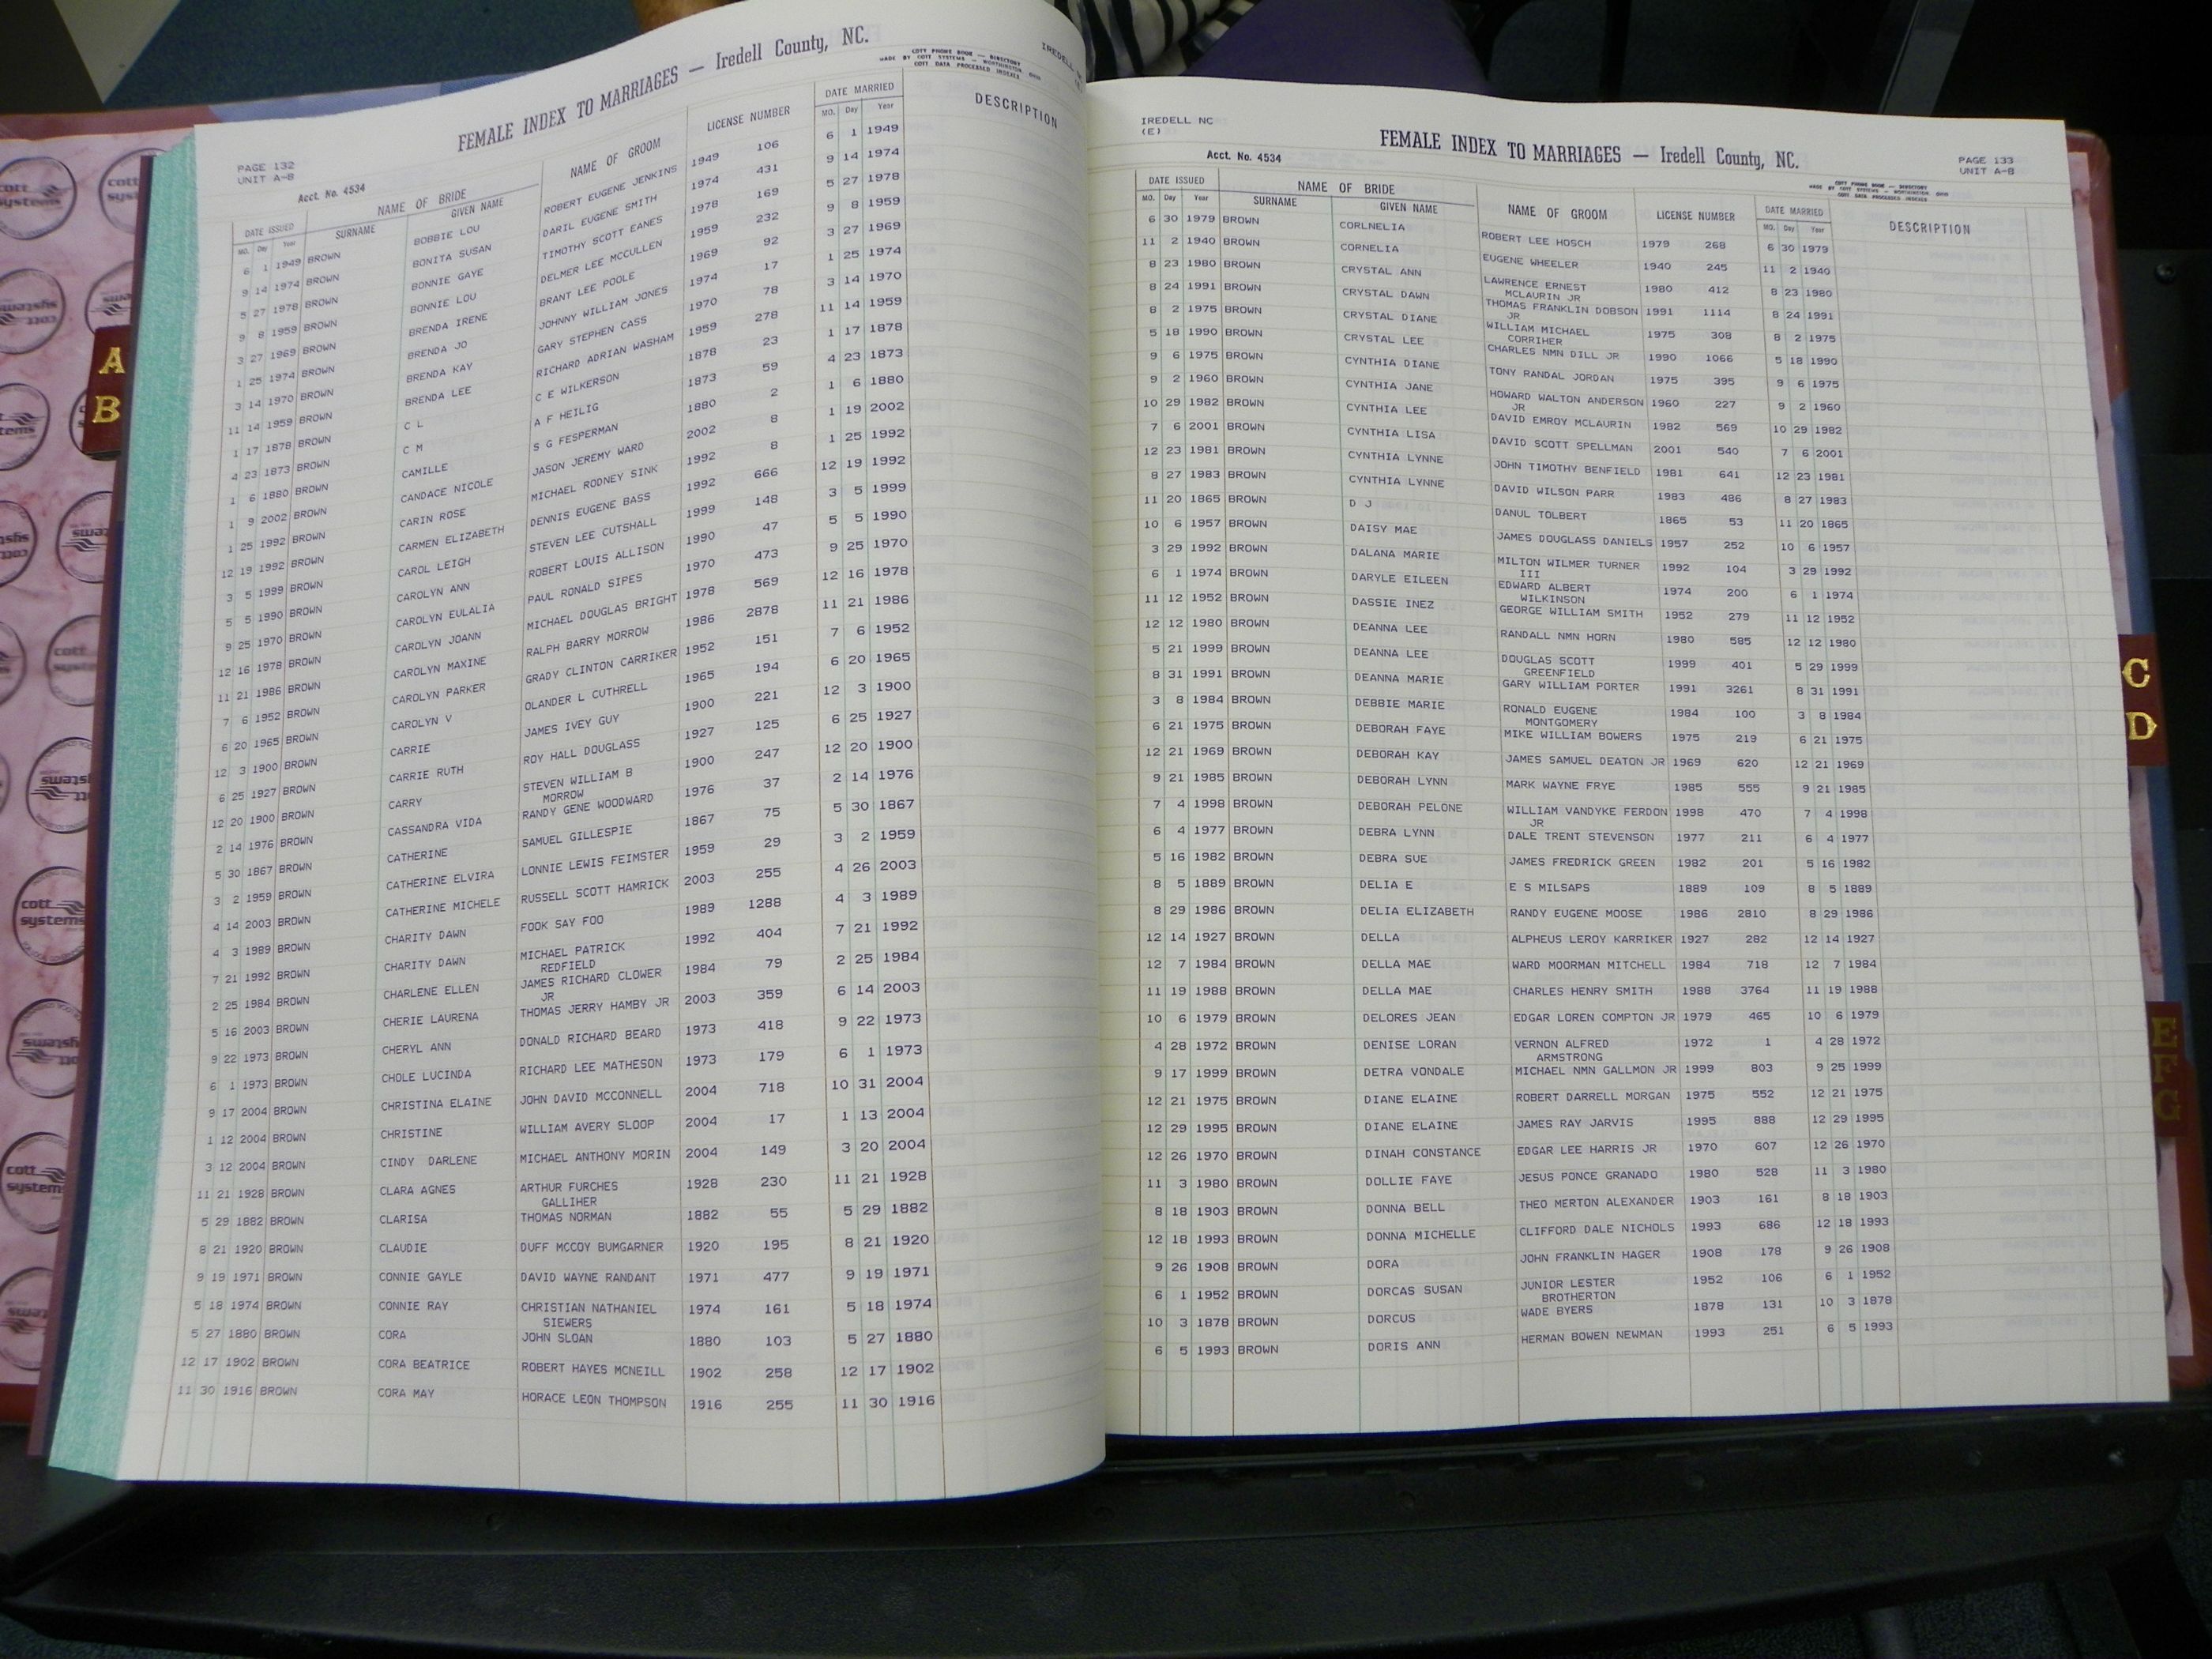 FEMALE INDEX TO MARRIAGES — Iredell County, NC.
COTT PHONE BOOK — DIRECTORY
MADE BY COTT SYSTEMS — WORTHINGTON OHIO
COTT DATA PROCESSED INDEXES
PAGE 132
UNIT A-B
Acct. No. 4534
DATE ISSUED NAME OF BRIDE NAME OF GROOM LICENSE NUMBER DATE MARRIED DESCRIPTION
MO. Day Year SURNAME GIVEN NAME MO. Day Year
6 1 1949 BROWN BOBBIE LOU ROBERT EUGENE JENKINS 1949 106 6 1 1949
9 14 1974 BROWN BONITA SUSAN DARIL EUGENE SMITH 1974 431 9 14 1974
5 27 1978 BROWN BONNIE GAYE TIMOTHY SCOTT EANES 1978 169 5 27 1978
9 8 1959 BROWN BONNIE LOU DELMER LEE MCCULLEN 1959 232 9 8 1959
3 27 1969 BROWN BRENDA IRENE BRANT LEE POOLE 1969 92 3 27 1969
1 25 1974 BROWN BRENDA JO JOHNNY WILLIAM JONES 1974 17 1 25 1974
3 14 1970 BROWN BRENDA KAY GARY STEPHEN CASS 1970 78 3 14 1970
11 14 1959 BROWN BRENDA LEE RICHARD ADRIAN WASHAM 1959 278 11 14 1959
1 17 1878 BROWN C L C E WILKERSON 1878 23 1 17 1878
4 23 1873 BROWN C M A F HEILIG 1873 59 4 23 1873
1 6 1880 BROWN CAMILLE S G FESPERMAN 1880 2 1 6 1880
1 9 2002 BROWN CANDACE NICOLE JASON JEREMY WARD 2002 8 1 19 2002
1 25 1992 BROWN CARIN ROSE MICHAEL RODNEY SINK 1992 8 1 25 1992
12 19 1992 BROWN CARMEN ELIZABETH DENNIS EUGENE BASS 1992 666 12 19 1992
3 5 1999 BROWN CAROL LEIGH STEVEN LEE CUTSHALL 1999 148 3 5 1999
5 5 1990 BROWN CAROLYN ANN ROBERT LOUIS ALLISON 1990 47 5 5 1990
9 25 1970 BROWN CAROLYN EULALIA PAUL RONALD SIPES 1970 473 9 25 1970
12 16 1978 BROWN CAROLYN JOANN MICHAEL DOUGLAS BRIGHT 1978 569 12 16 1978
11 21 1986 BROWN CAROLYN MAXINE RALPH BARRY MORROW 1986 2878 11 21 1986
7 6 1952 BROWN CAROLYN PARKER GRADY CLINTON CARRIKER 1952 151 7 6 1952
6 20 1965 BROWN CAROLYN V OLANDER L CUTHRELL 1965 194 6 20 1965
12 3 1900 BROWN CARRIE JAMES IVEY GUY 1900 221 12 3 1900
6 25 1927 BROWN CARRIE RUTH ROY HALL DOUGLASS 1927 125 6 25 1927
12 20 1900 BROWN CARRY STEVEN WILLIAM B 1900 247 12 20 1900
MORROW
2 14 1976 BROWN CASSANDRA VIDA RANDY GENE WOODWARD 1976 37 2 14 1976
5 30 1867 BROWN CATHERINE SAMUEL GILLESPIE 1867 75 5 30 1867
3 2 1959 BROWN CATHERINE ELVIRA LONNIE LEWIS FEIMSTER 1959 29 3 2 1959
4 14 2003 BROWN CATHERINE MICHELE RUSSELL SCOTT HAMRICK 2003 255 4 26 2003
4 3 1989 BROWN CHARITY DAWN FOOK SAY FOO 1989 1288 4 3 1989
7 21 1992 BROWN CHARITY DAWN MICHAEL PATRICK 1992 404 7 21 1992
REDFIELD
2 25 1984 BROWN CHARLENE ELLEN JAMES RICHARD CLOWER 1984 79 2 25 1984
JR
5 16 2003 BROWN CHERIE LAURENA THOMAS JERRY HAMBY JR 2003 359 6 14 2003
9 22 1973 BROWN CHERYL ANN DONALD RICHARD BEARD 1973 418 9 22 1973
6 1 1973 BROWN CHOLE LUCINDA RICHARD LEE MATHESON 1973 179 6 1 1973
9 17 2004 BROWN CHRISTINA ELAINE JOHN DAVID MCCONNELL 2004 718 10 31 2004
1 12 2004 BROWN CHRISTINE WILLIAM AVERY SLOOP 2004 17 1 13 2004
3 12 2004 BROWN CINDY DARLENE MICHAEL ANTHONY MORIN 2004 149 3 20 2004
11 21 1928 BROWN CLARA AGNES ARTHUR FURCHES 1928 230 11 21 1928
GALLIHER
5 29 1882 BROWN CLARISA THOMAS NORMAN 1882 55 5 29 1882
8 21 1920 BROWN CLAUDIE DUFF MCCOY BUMGARNER 1920 195 8 21 1920
9 19 1971 BROWN CONNIE GAYLE DAVID WAYNE RANDANT 1971 477 9 19 1971
5 18 1974 BROWN CONNIE RAY CHRISTIAN NATHANIEL 1974 161 5 18 1974
SIEWERS
5 27 1880 BROWN CORA JOHN SLOAN 1880 103 5 27 1880
12 17 1902 BROWN CORA BEATRICE ROBERT HAYES MCNEILL 1902 258 12 17 1902
11 30 1916 BROWN CORA MAY HORACE LEON THOMPSON 1916 255 11 30 1916
IREDELL NC
(E)
FEMALE INDEX TO MARRIAGES — Iredell County, NC.
Acct. No. 4534
PAGE 133
UNIT A-B
COTT PHONE BOOK — DIRECTORY
MADE BY COTT SYSTEMS — WORTHINGTON OHIO
COTT DATA PROCESSED INDEXES
DATE ISSUED NAME OF BRIDE NAME OF GROOM LICENSE NUMBER DATE MARRIED DESCRIPTION
MO. Day Year SURNAME GIVEN NAME MO. Day Year
6 30 1979 BROWN CORLNELIA ROBERT LEE HOSCH 1979 268 6 30 1979
11 2 1940 BROWN CORNELIA EUGENE WHEELER 1940 245 11 2 1940
8 23 1980 BROWN CRYSTAL ANN LAWRENCE ERNEST 1980 412 8 23 1980
MCLAURIN JR
8 24 1991 BROWN CRYSTAL DAWN THOMAS FRANKLIN DOBSON 1991 1114 8 24 1991
JR
8 2 1975 BROWN CRYSTAL DIANE WILLIAM MICHAEL 1975 308 8 2 1975
CORRIHER
5 18 1990 BROWN CRYSTAL LEE CHARLES NMN DILL JR 1990 1066 5 18 1990
9 6 1975 BROWN CYNTHIA DIANE TONY RANDAL JORDAN 1975 395 9 6 1975
9 2 1960 BROWN CYNTHIA JANE HOWARD WALTON ANDERSON 1960 227 9 2 1960
JR
10 29 1982 BROWN CYNTHIA LEE DAVID EMROY MCLAURIN 1982 569 10 29 1982
7 6 2001 BROWN CYNTHIA LISA DAVID SCOTT SPELLMAN 2001 540 7 6 2001
12 23 1981 BROWN CYNTHIA LYNNE JOHN TIMOTHY BENFIELD 1981 641 12 23 1981
8 27 1983 BROWN CYNTHIA LYNNE DAVID WILSON PARR 1983 486 8 27 1983
11 20 1865 BROWN D J DANUL TOLBERT 1865 53 11 20 1865
10 6 1957 BROWN DAISY MAE JAMES DOUGLASS DANIELS 1957 252 10 6 1957
3 29 1992 BROWN DALANA MARIE MILTON WILMER TURNER 1992 104 3 29 1992
III
6 1 1974 BROWN DARYLE EILEEN EDWARD ALBERT 1974 200 6 1 1974
WILKINSON
11 12 1952 BROWN DASSIE INEZ GEORGE WILLIAM SMITH 1952 279 11 12 1952
12 12 1980 BROWN DEANNA LEE RANDALL NMN HORN 1980 585 12 12 1980
5 21 1999 BROWN DEANNA LEE DOUGLAS SCOTT 1999 401 5 29 1999
GREENFIELD
8 31 1991 BROWN DEANNA MARIE GARY WILLIAM PORTER 1991 3261 8 31 1991
3 8 1984 BROWN DEBBIE MARIE RONALD EUGENE 1984 100 3 8 1984
MONTGOMERY
6 21 1975 BROWN DEBORAH FAYE MIKE WILLIAM BOWERS 1975 219 6 21 1975
12 21 1969 BROWN DEBORAH KAY JAMES SAMUEL DEATON JR 1969 620 12 21 1969
9 21 1985 BROWN DEBORAH LYNN MARK WAYNE FRYE 1985 555 9 21 1985
7 4 1998 BROWN DEBORAH PELONE WILLIAM VANDYKE FERDON 1998 470 7 4 1998
JR
6 4 1977 BROWN DEBRA LYNN DALE TRENT STEVENSON 1977 211 6 4 1977
5 16 1982 BROWN DEBRA SUE JAMES FREDRICK GREEN 1982 201 5 16 1982
8 5 1889 BROWN DELIA E E S MILSAPS 1889 109 8 5 1889
8 29 1986 BROWN DELIA ELIZABETH RANDY EUGENE MOOSE 1986 2810 8 29 1986
12 14 1927 BROWN DELLA ALPHEUS LEROY KARRIKER 1927 282 12 14 1927
12 7 1984 BROWN DELLA MAE WARD MOORMAN MITCHELL 1984 718 12 7 1984
11 19 1988 BROWN DELLA MAE CHARLES HENRY SMITH 1988 3764 11 19 1988
10 6 1979 BROWN DELORES JEAN EDGAR LOREN COMPTON JR 1979 465 10 6 1979
4 28 1972 BROWN DENISE LORAN VERNON ALFRED 1972 1 4 28 1972
ARMSTRONG
9 17 1999 BROWN DETRA VONDALE MICHAEL NMN GALLMON JR 1999 803 9 25 1999
12 21 1975 BROWN DIANE ELAINE ROBERT DARRELL MORGAN 1975 552 12 21 1975
12 29 1995 BROWN DIANE ELAINE JAMES RAY JARVIS 1995 888 12 29 1995
12 26 1970 BROWN DINAH CONSTANCE EDGAR LEE HARRIS JR 1970 607 12 26 1970
11 3 1980 BROWN DOLLIE FAYE JESUS PONCE GRANADO 1980 528 11 3 1980
8 18 1903 BROWN DONNA BELL THEO MERTON ALEXANDER 1903 161 8 18 1903
12 18 1993 BROWN DONNA MICHELLE CLIFFORD DALE NICHOLS 1993 686 12 18 1993
9 26 1908 BROWN DORA JOHN FRANKLIN HAGER 1908 178 9 26 1908
6 1 1952 BROWN DORCAS SUSAN JUNIOR LESTER 1952 106 6 1 1952
BROTHERTON
10 3 1878 BROWN DORCUS WADE BYERS 1878 131 10 3 1878
6 5 1993 BROWN DORIS ANN HERMAN BOWEN NEWMAN 1993 251 6 5 1993
A
B
C
D
E
F
G
cott systems